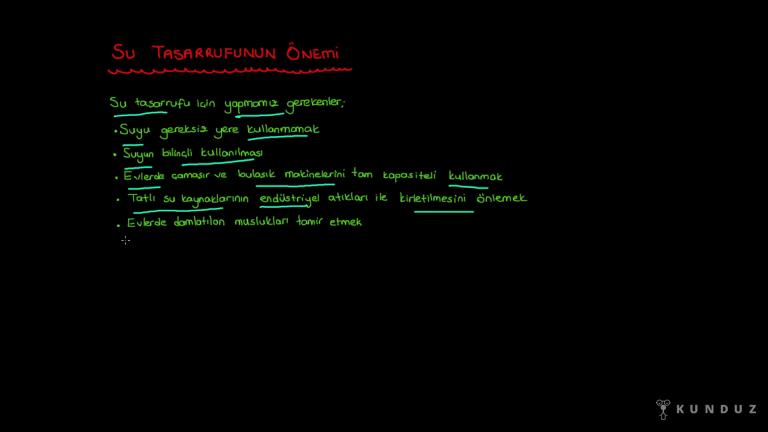 SU TASARRUFUNUN ÖNEMİ
Su tasarrufu için yapmamız gerekenler;
• Suyu gereksiz yere kullanmamak
• Suyun bilinçli kullanılması
• Evlerde çamaşır ve bulaşık makinelerini tam kapasiteli kullanmak
• Tatlı su kaynaklarının endüstriyel atıkları ile kirletilmesini önlemek
• Evlerde damlatılan muslukları tamir etmek
KUNDUZ